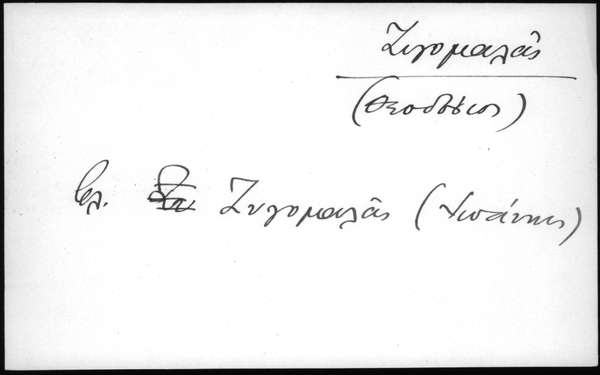 Ζυγομαλᾶς
(Θεοδόσιος)
βλ. Ζυγομαλᾶς (Ἰωάννης)